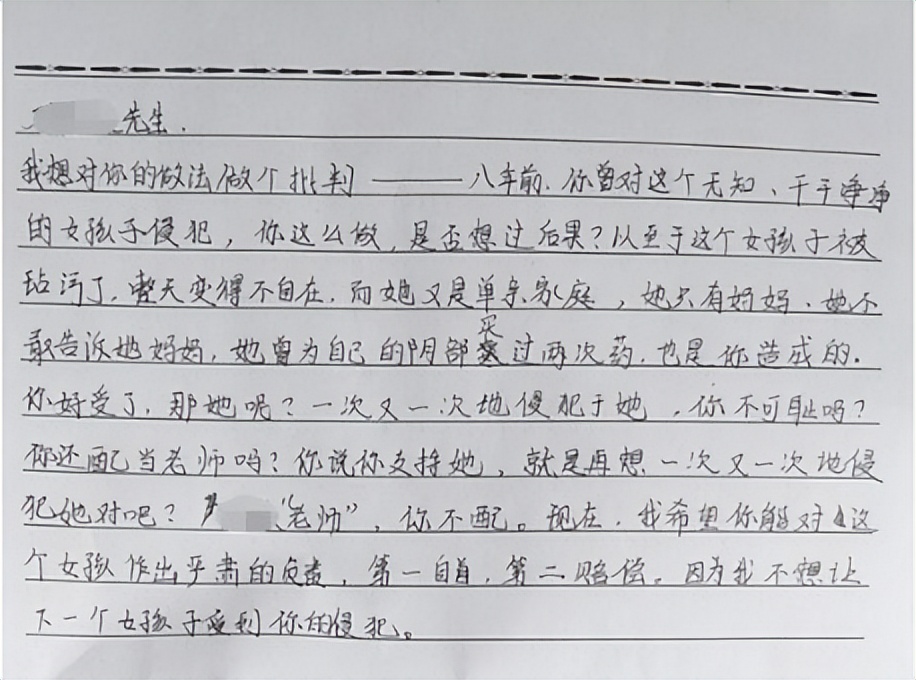 先生.
我想对你的做法做个批判——八年前.你曾对这个无知、干干净净
的女孩子侵犯，你这么做，是否想过后果？以至于这个女孩子被
玷污了.整天变得不自在.而她又是单亲家庭，她只有妈妈.她不
敢告诉她妈妈，她曾为自己的阴部买过两次药.也是你造成的.
你好受了，那她呢？一次又一次地侵犯于她，你不可耻吗？
你还配当老师吗？你说你支持她，就是再想一次又一次地侵
犯她对吧？“老师”，你不配。现在，我希望你能对这
个女孩作出严肃的负责，第一自首，第二赔偿。因为我不想让
下一个女孩子受到你的侵犯。